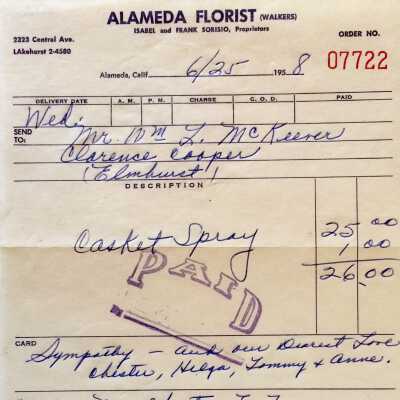 ALAMEDA FLORIST (WALKERS)
ISABEL and FRANK SORISIO, Proprietors
2323 Central Ave.
LAkehurst 2-4580
ORDER NO.
07722
Alameda, Calif. 6/25 1958
DELIVERY DATE A. M. P. M. CHARGE C. O. D. PAID
Wed.
SEND TO: Mr. Wm L. McKeever
Clarence Cooper
(Elmhurst)
DESCRIPTION
Casket Spray 25 00
1 00
26 00
PAID
CARD
Sympathy — and our Dearest Love
Chester, Helga, Tommy & Anne.